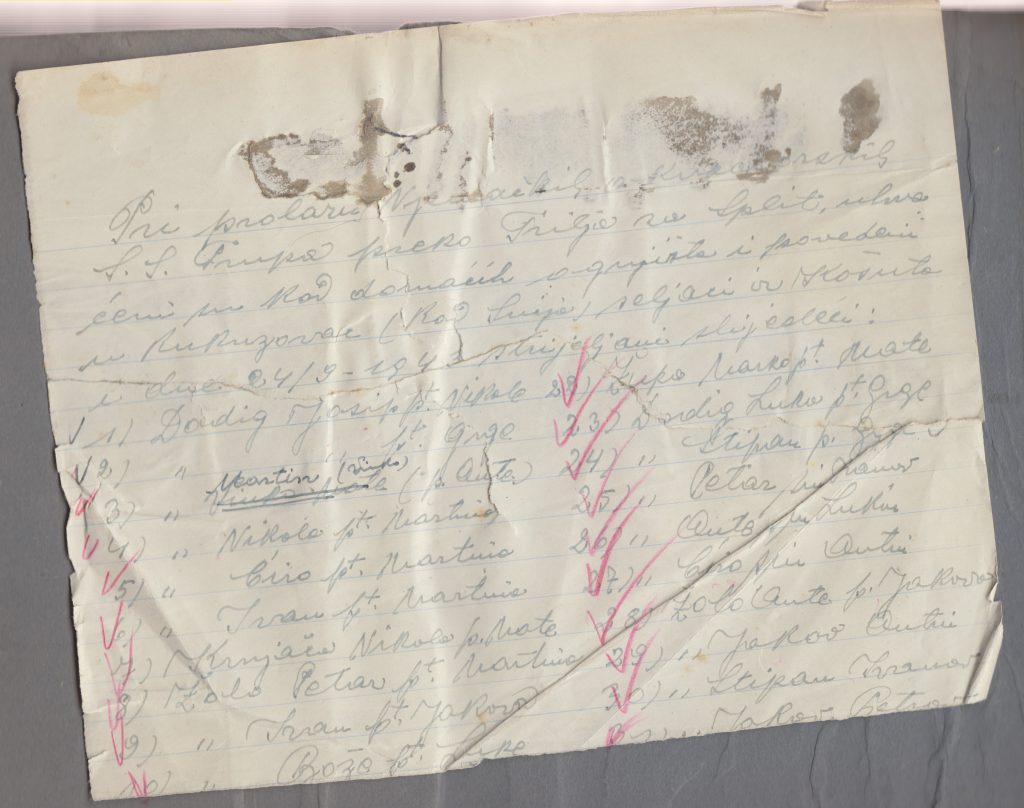 Pri prolazu Njemačkih
S. S. Trupa preko Trilja za Split, uhva
ćeni su kod domaćih ognjišta i povedeni
u Kukuzovac (kod Sinja) seljaci iz Košuta
i dne 24/9-1943 strijeljani slijedeći:
1) Dondig Josip pt. Nikole
2) " pt. Grge
3) " Martin (Vinko) (p. Ante)
4) " Nikola pt. Martina
5) " Ćiro pt. Martina
6) " Ivan pt. Martina
7) Krnjača Nikola p. Mate
8) Žolo Petar pt. Martina
9) " Ivan pt. Jakova
10) " Božo pt.
22) Župa Marko pt. Mate
23) Dondig Luka pt. Grge
24) " Stipan p. Grge
25) " Petar Ivanov
26) " Ante Lukin
27) " Ćiro Antin
28) Žolo Ante p. Jakova
29) " Jakov Antin
30) " Stipan Ivanov
31) " Jakov Petrov